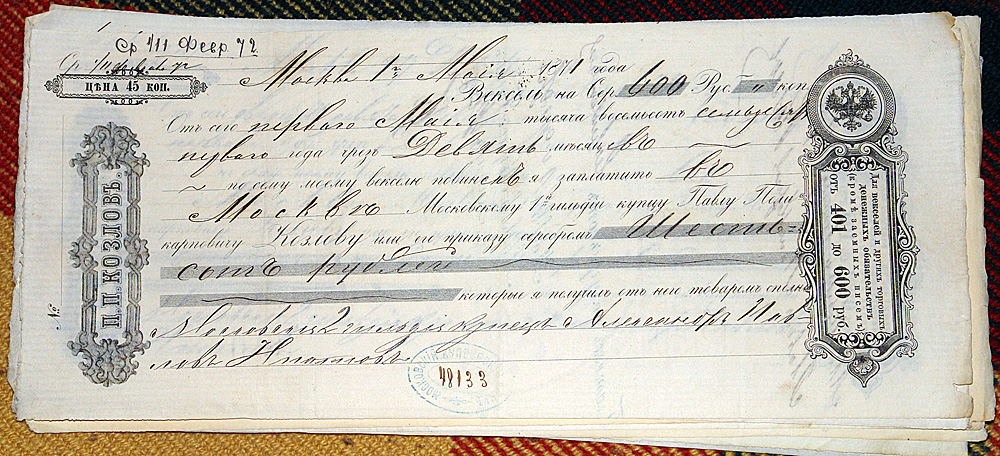 Ср. 1/11 Февр. 72
ЦѢНА 45 КОП.
Москва 1го Маія 1871 года
Вексель на Сер. 600 Руб. " коп.
Отъ сего перваго Маія тысяча восемьсотъ семьдесятъ
перваго года чрезъ Девять мѣсяцевъ
~ по сему моему векселю повиненъ я заплатить въ
Москвѣ Московскому 1й гильдіи купцу Павлу Поли
карповичу Козлову или его приказу серебромъ Шесть=
сотъ рублей
которые я получилъ отъ него товаромъ сполна
Московскій 2 гильдіи купецъ Александръ Пав
ловъ
№
П.П. КОЗЛОВЪ.
48133
Для векселей и другихъ торговыхъ
денежныхъ обязательствъ
(кромѣ заемныхъ писемъ)
ОТЪ 401 ДО 600 РУБ.